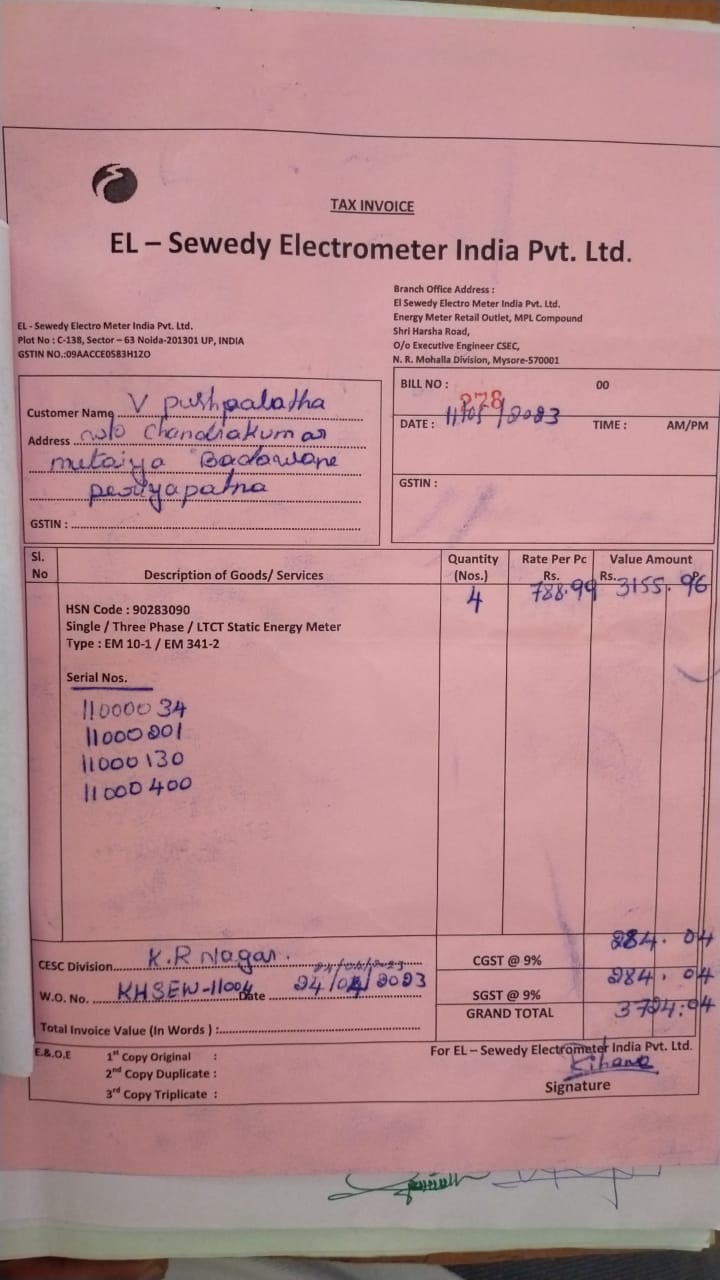 TAX INVOICE
EL – Sewedy Electrometer India Pvt. Ltd.
EL - Sewedy Electro Meter India Pvt. Ltd.
Plot No : C-138, Sector – 63 Noida-201301 UP, INDIA
GSTIN NO.:09AACCE0583H1ZO
Branch Office Address :
El Sewedy Electro Meter India Pvt. Ltd.
Energy Meter Retail Outlet, MPL Compound
Shri Harsha Road,
O/o Executive Engineer CSEC,
N. R. Mohalla Division, Mysore-570001
Customer Name V pushpalatha
Address w/o Chandrakumar
mutaiya Badawane
periyapatna
GSTIN :
BILL NO : 278 00
DATE : 11/05/2023 TIME : AM/PM
GSTIN :
Sl. No Description of Goods/ Services Quantity (Nos.) Rate Per Pc Rs. Value Amount Rs. P.
4 788.99 3155.96
HSN Code : 90283090
Single / Three Phase / LTCT Static Energy Meter
Type : EM 10-1 / EM 341-2
Serial Nos.
11000034
11000201
11000130
11000400
CESC Division K.R Nagar.
CGST @ 9% 284.04
W.O. No. KHSEW-11004 Date 24/04/2023
SGST @ 9% 284.04
GRAND TOTAL 3724.04
Total Invoice Value (In Words ) :
E.&.O,E 1st Copy Original :
2nd Copy Duplicate :
3rd Copy Triplicate :
For EL – Sewedy Electrometer India Pvt. Ltd.
Signature